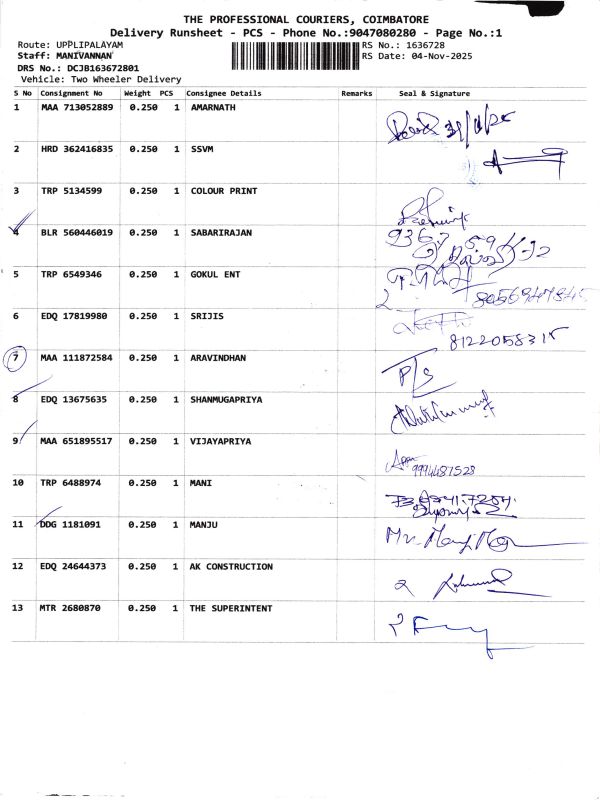 THE PROFESSIONAL COURIERS, COIMBATORE
Delivery Runsheet - PCS - Phone No.:9047080280 - Page No.:1
Route: UPPLIPALAYAM RS No.: 1636728
Staff: MANIVANNAN RS Date: 04-Nov-2025
DRS No.: DCJB163672801
Vehicle: Two Wheeler Delivery
S No Consignment No Weight PCS Consignee Details Remarks Seal & Signature
1 MAA 713052889 0.250 1 AMARNATH
2 HRD 362416835 0.250 1 SSVM
3 TRP 5134599 0.250 1 COLOUR PRINT
4 BLR 560446019 0.250 1 SABARIRAJAN
5 TRP 6549346 0.250 1 GOKUL ENT
6 EDQ 17819980 0.250 1 SRIJIS
8122058315
7 MAA 111872584 0.250 1 ARAVINDHAN P/S
8 EDQ 13675635 0.250 1 SHANMUGAPRIYA
9 MAA 651895517 0.250 1 VIJAYAPRIYA
9994487528
10 TRP 6488974 0.250 1 MANI
11 DDG 1181091 0.250 1 MANJU
12 EDQ 24644373 0.250 1 AK CONSTRUCTION
13 MTR 2680870 0.250 1 THE SUPERINTENT